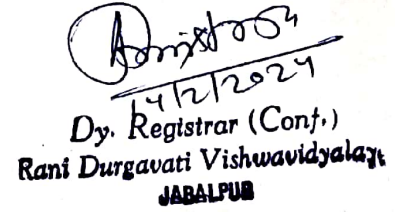 14/2/2024
Dy. Registrar (Conf.)
Rani Durgavati Vishwavidyalaya
JABALPUR